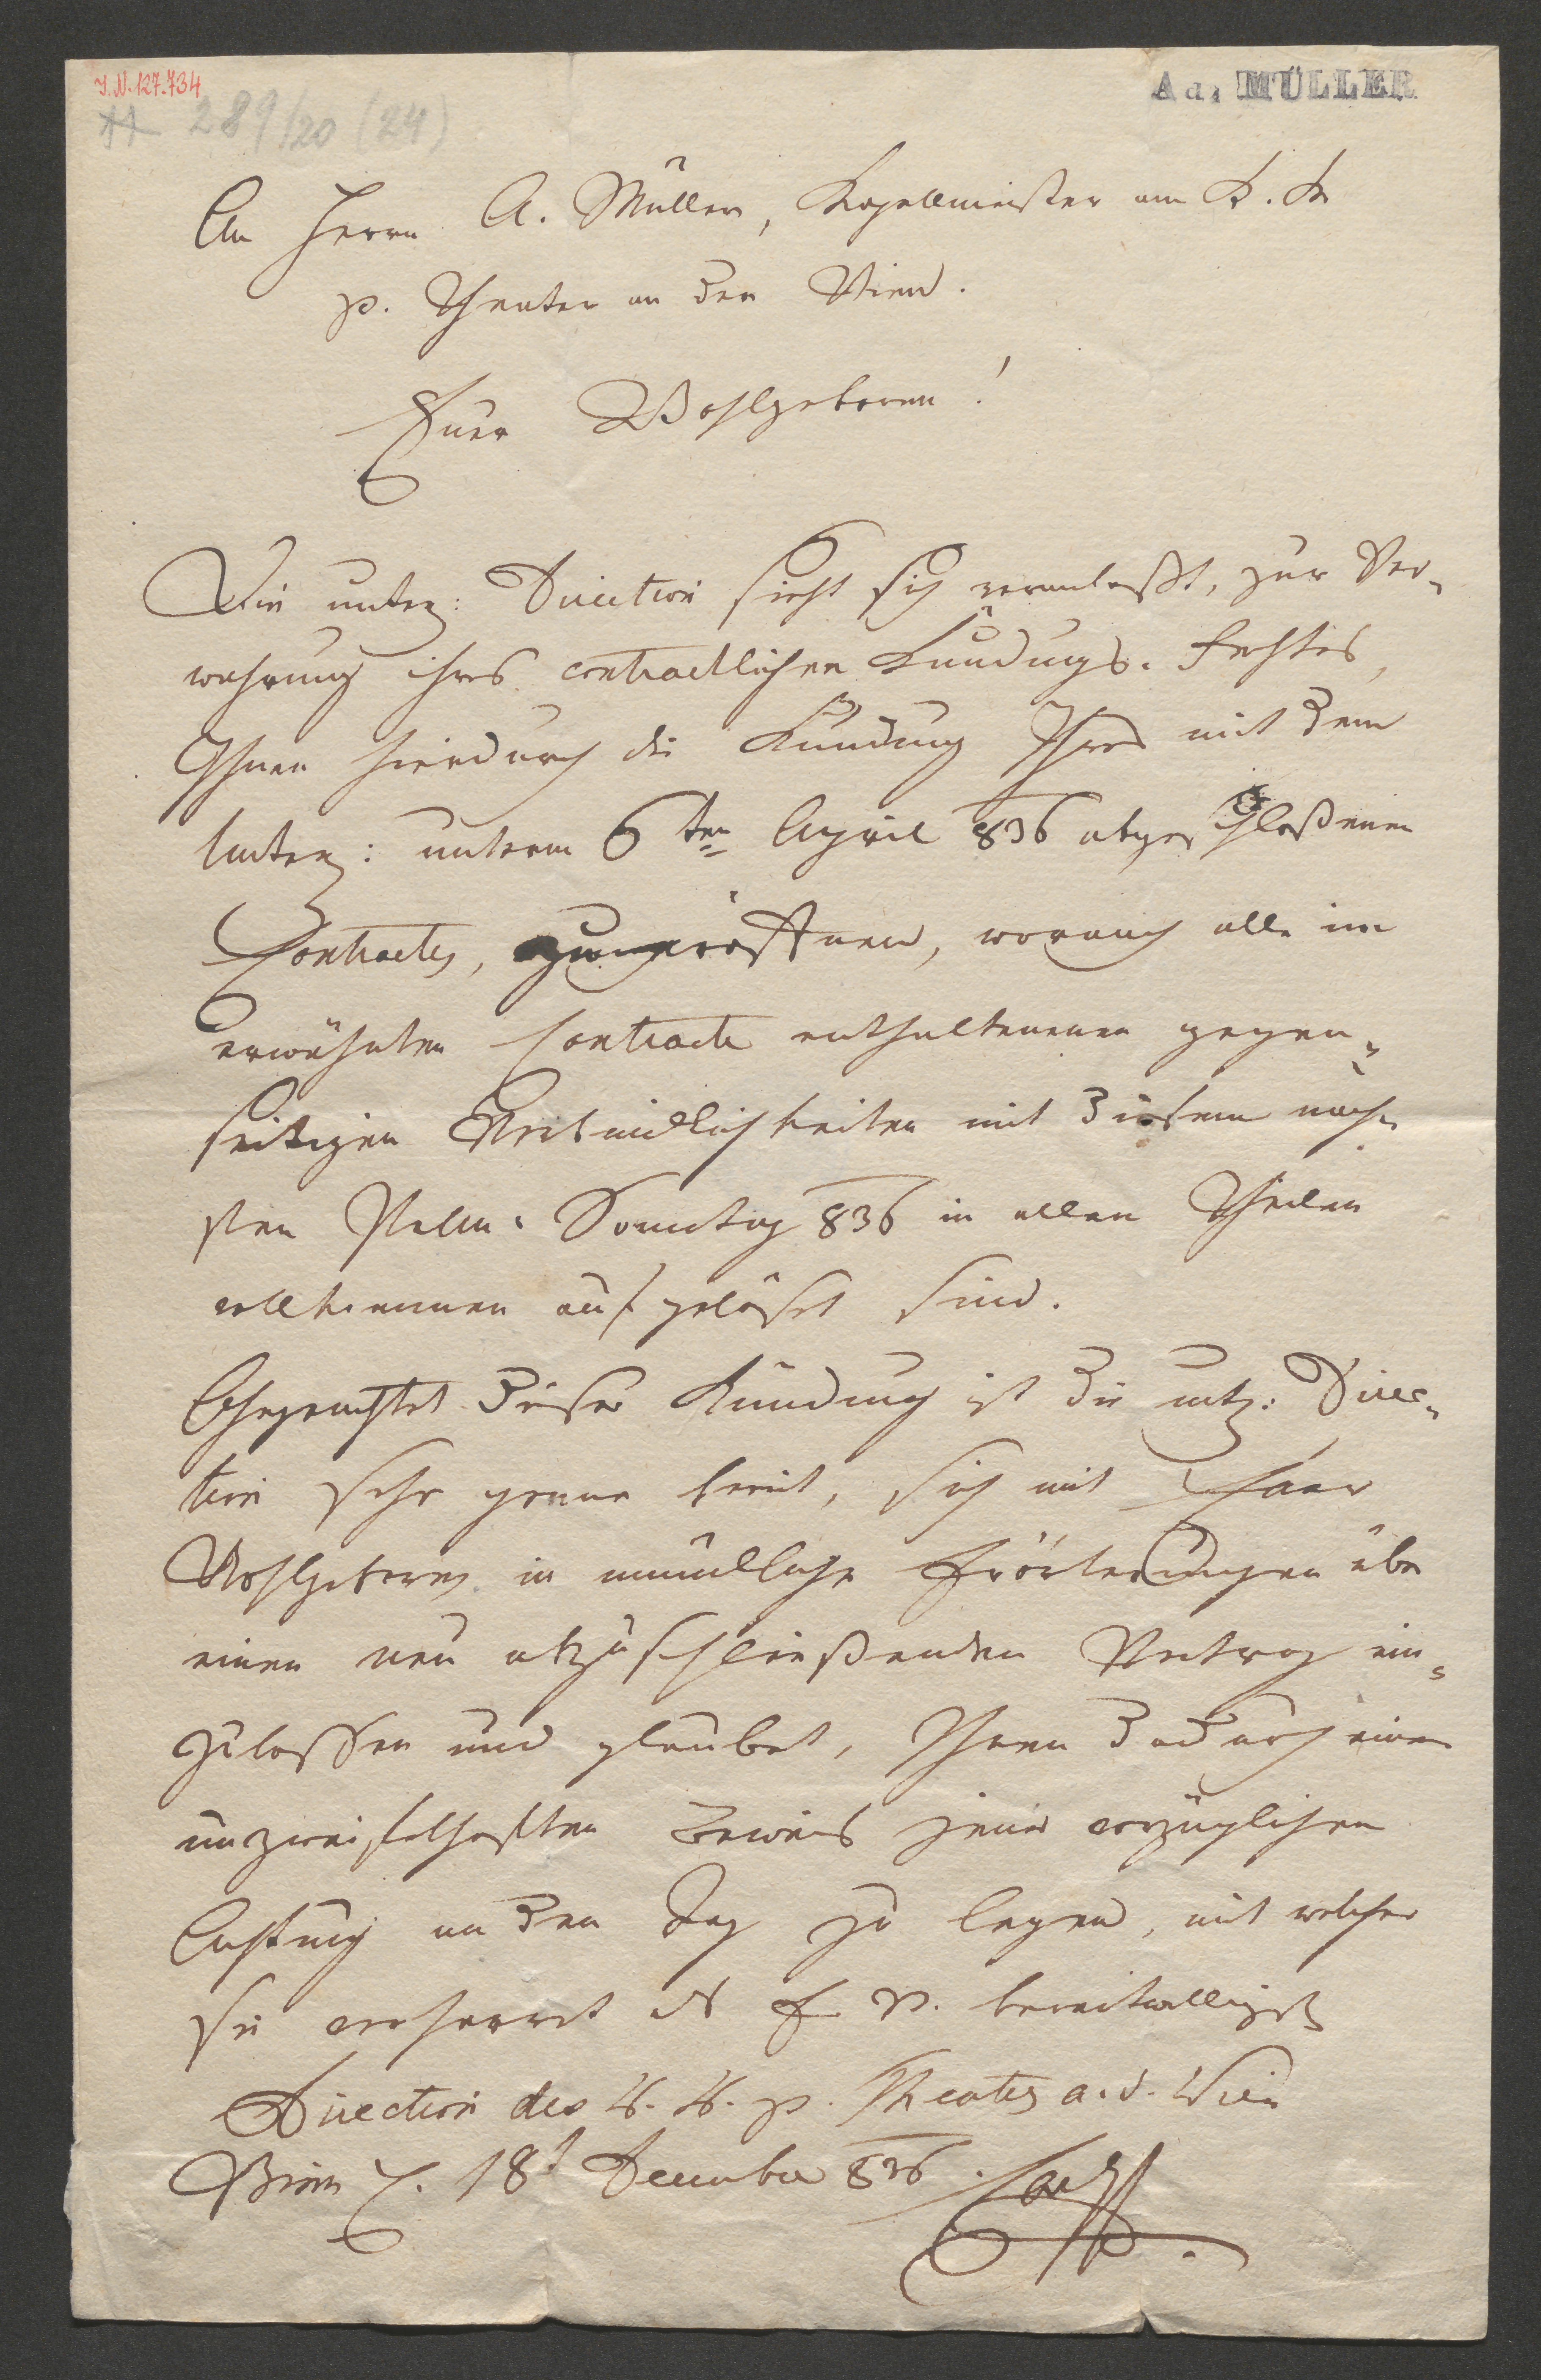 I.N. 127.734
289/20 (24)
Ad. MÜLLER
An Herrn A. Müller, Kapellmeister am K. K.
p. Theater an der Wien.
Euer Wohlgeboren!
Die unterz: Direction sieht sich veranlaßt, zur Ver-
wahrung ihres contractlichen Kündungs-Rechtes,
Ihnen hierdurch die Kündung Ihres mit dem
Unterz: unterm 6ten April 836 abgeschloßenen
Contractes, zu eröffnen, wonach alle im
erwähnten Contracte enthaltenenen gegen-
seitigen Verbindlichkeiten mit diesem näch-
sten Palm-Sonntag 836 in allen Theilen
vollkommen aufgelöst sind.
Ohngeachtet dieser Kündung ist die untz: Direc-
tion sehr gerne bereit, sich mit Euer
Wohlgeboren in mündliche Erörterungen über
einen neu abzuschließenden Vertrag ein-
zulassen und glaubet, Ihnen dadurch einen
unzweifelhaften Beweis jener vorzüglichen
Achtung an den Tag zu legen, mit welcher
sie verharret als E W. bereitwilligste
Direction des K. K. p. Theaters a. d. Wien
Wien d. 18t December 836. Carl